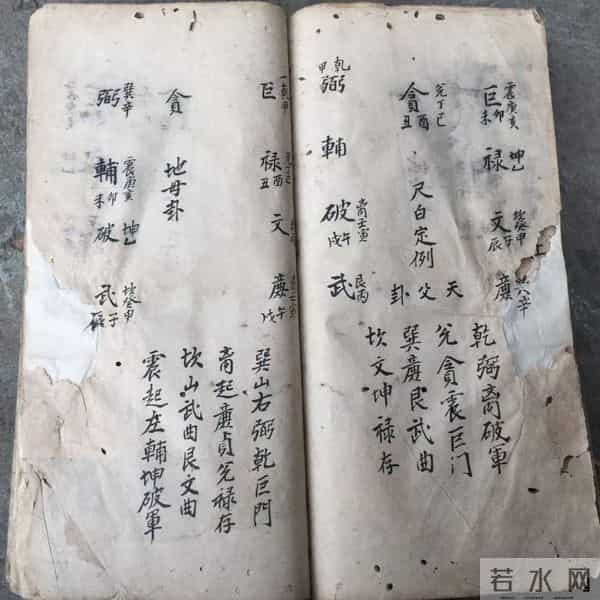 震庚亥
巨卯未
坤乙
祿
坎癸申
文子辰
廉
兌丁巳
貪酉丑
尺白定例
天父卦
乾甲
弼
輔
离壬寅
破午戌
艮丙
武
乾弼离破軍
兌貪震巨门
巽廉艮武曲
坎文坤祿存
巨
祿酉丑
文
廉午戌
貪
地母卦
巽辛
弼
震庚亥
輔卯未
坤乙
破
坎癸申
武子辰
巽山右弼乾巨門
离起廉貞兌祿存
坎山武曲艮文曲
震起左輔坤破軍
若水网